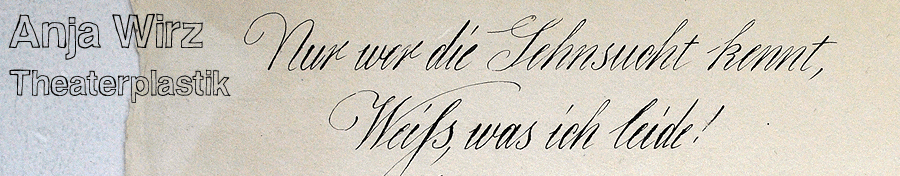 Anja Wirz
Theaterplastik
Nur wer die Sehnsucht kennt,
Weiß, was ich leide!